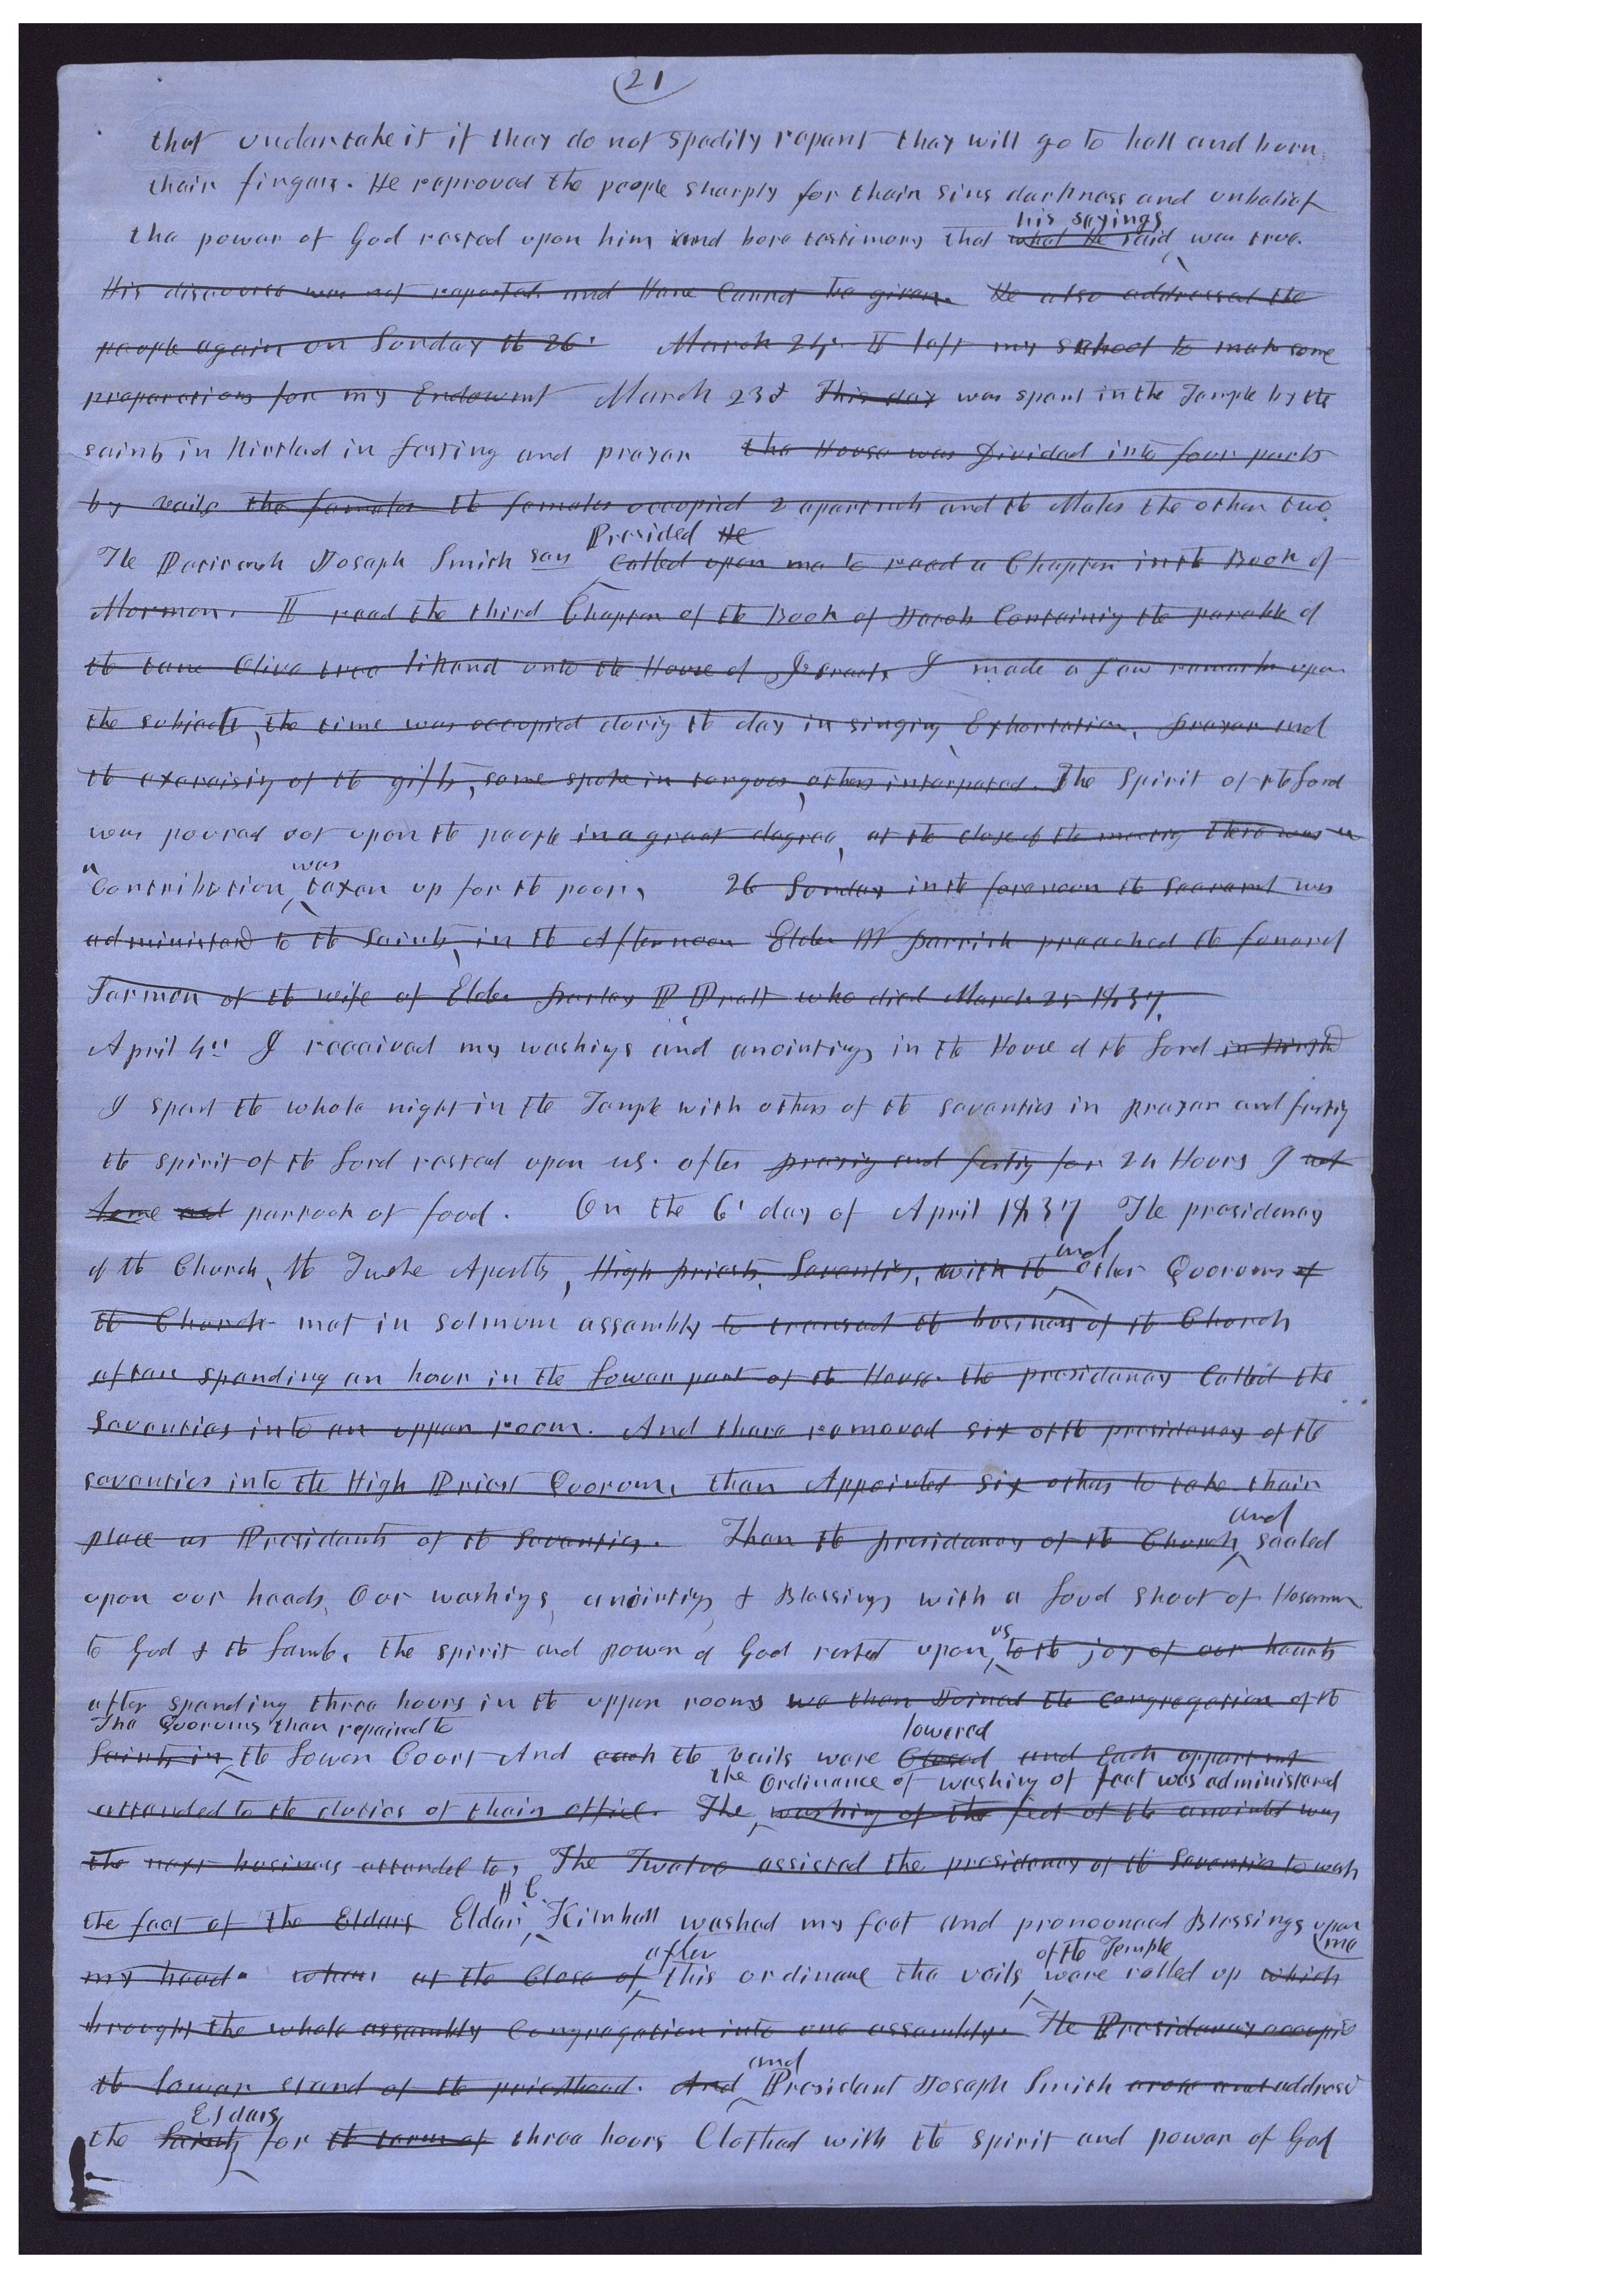 21
that undertake it if they do not spedily repent they will go to hell and burn
their fingers. He reproved the people sharply for their sins darkness and unbelief
his sayings
the power of God rested upon him and bore testimony that what He said was true.
His discourse was not reported and Hence Cannot be given. He also addressed the
people again on Sunday the 26. March 24. I left my school to make some
preparations for my Endowment March 23d This day was spent in the Temple by the
saints in Kirtland in fasting and prayer the House was Divided into four parts
by vails the females the females occupied 2 apartments and the Males the other two
Presided He
The Patriarch Joseph Smith sen Called upon me to read a Chapter in the Book of
Mormon. I read the third Chapter of the Book of Jacob Containing the parable of
the tame Olive tree likened unto the House of Israel, I made a few remarks upon
the subject, the time was occupied during the day in singing, Exhortation, prayer and
the exercising of the gifts, some spoke in tongues, others interpreted. The Spirit of the Lord
was poured out upon the people in a great degree, at the close of the meeting there was a
a was
Contribution, taken up for the poor, 26 Sunday in the forenoon the sacrament was
administered to the Saints, in the Afternoon Elder W Parrish preached the funeral
Sermon of the wife of Elder Parley P Pratt who died March 25 1837.
April 4th I received my washings and anointings in the House of the Lord in Kirtland
I spent the whole night in the Temple with others of the seventies in prayer and fasting
the spirit of the Lord rested upon us. after praying and fasting for 24 Hours I
home and partook of food. On the 6t day of April 1837 The presidency
and
of the Church, the Twelve Apostles, High priests, Seventies, with the other Quorums of
the Church met in solmnn assembly to transact the business of the Church
after spending an hour in the Lower part of the House. the presidency Called the
Seventies into an upper room. And there removed six of the presidency of the
seventies into the High Priest Quorum, then Appointed six others to take their
and
place as Presidents of the Seventies. Then the presidency of the Church, sealed
upon our heads, Our washings, anointings & Blessings with a Loud shout of Hosanna
us
to God & the Lamb, the spirit and power of God rested upon, to the joy of our hearts
after spending three hours in the upper rooms we then Joined the Congregation of the
The Quorums then repaired to lowered
Saints in the Lower Court And each the vails were Closed and Each appartment
the Ordinance of washing of feet was administered
attended to the duties of their office. The washing of the feet of the anointed was
the next business attended to, The Twelve assisted the presidency of the Seventies to wash
H C
the feet of the Elders Elder, Kimball washed my feet and pronounced Blessings upon
after of the Temple me
my head. when at the Close of this ordinance the vails were rolled up which
brought the whole assembly Congregation into one assembly. The Presidency occupied
and
the lower stand of the priesthood. And President Joseph Smith arose and addressed
Elders
the Saints for the term of three hours Clothed with the spirit and power of God